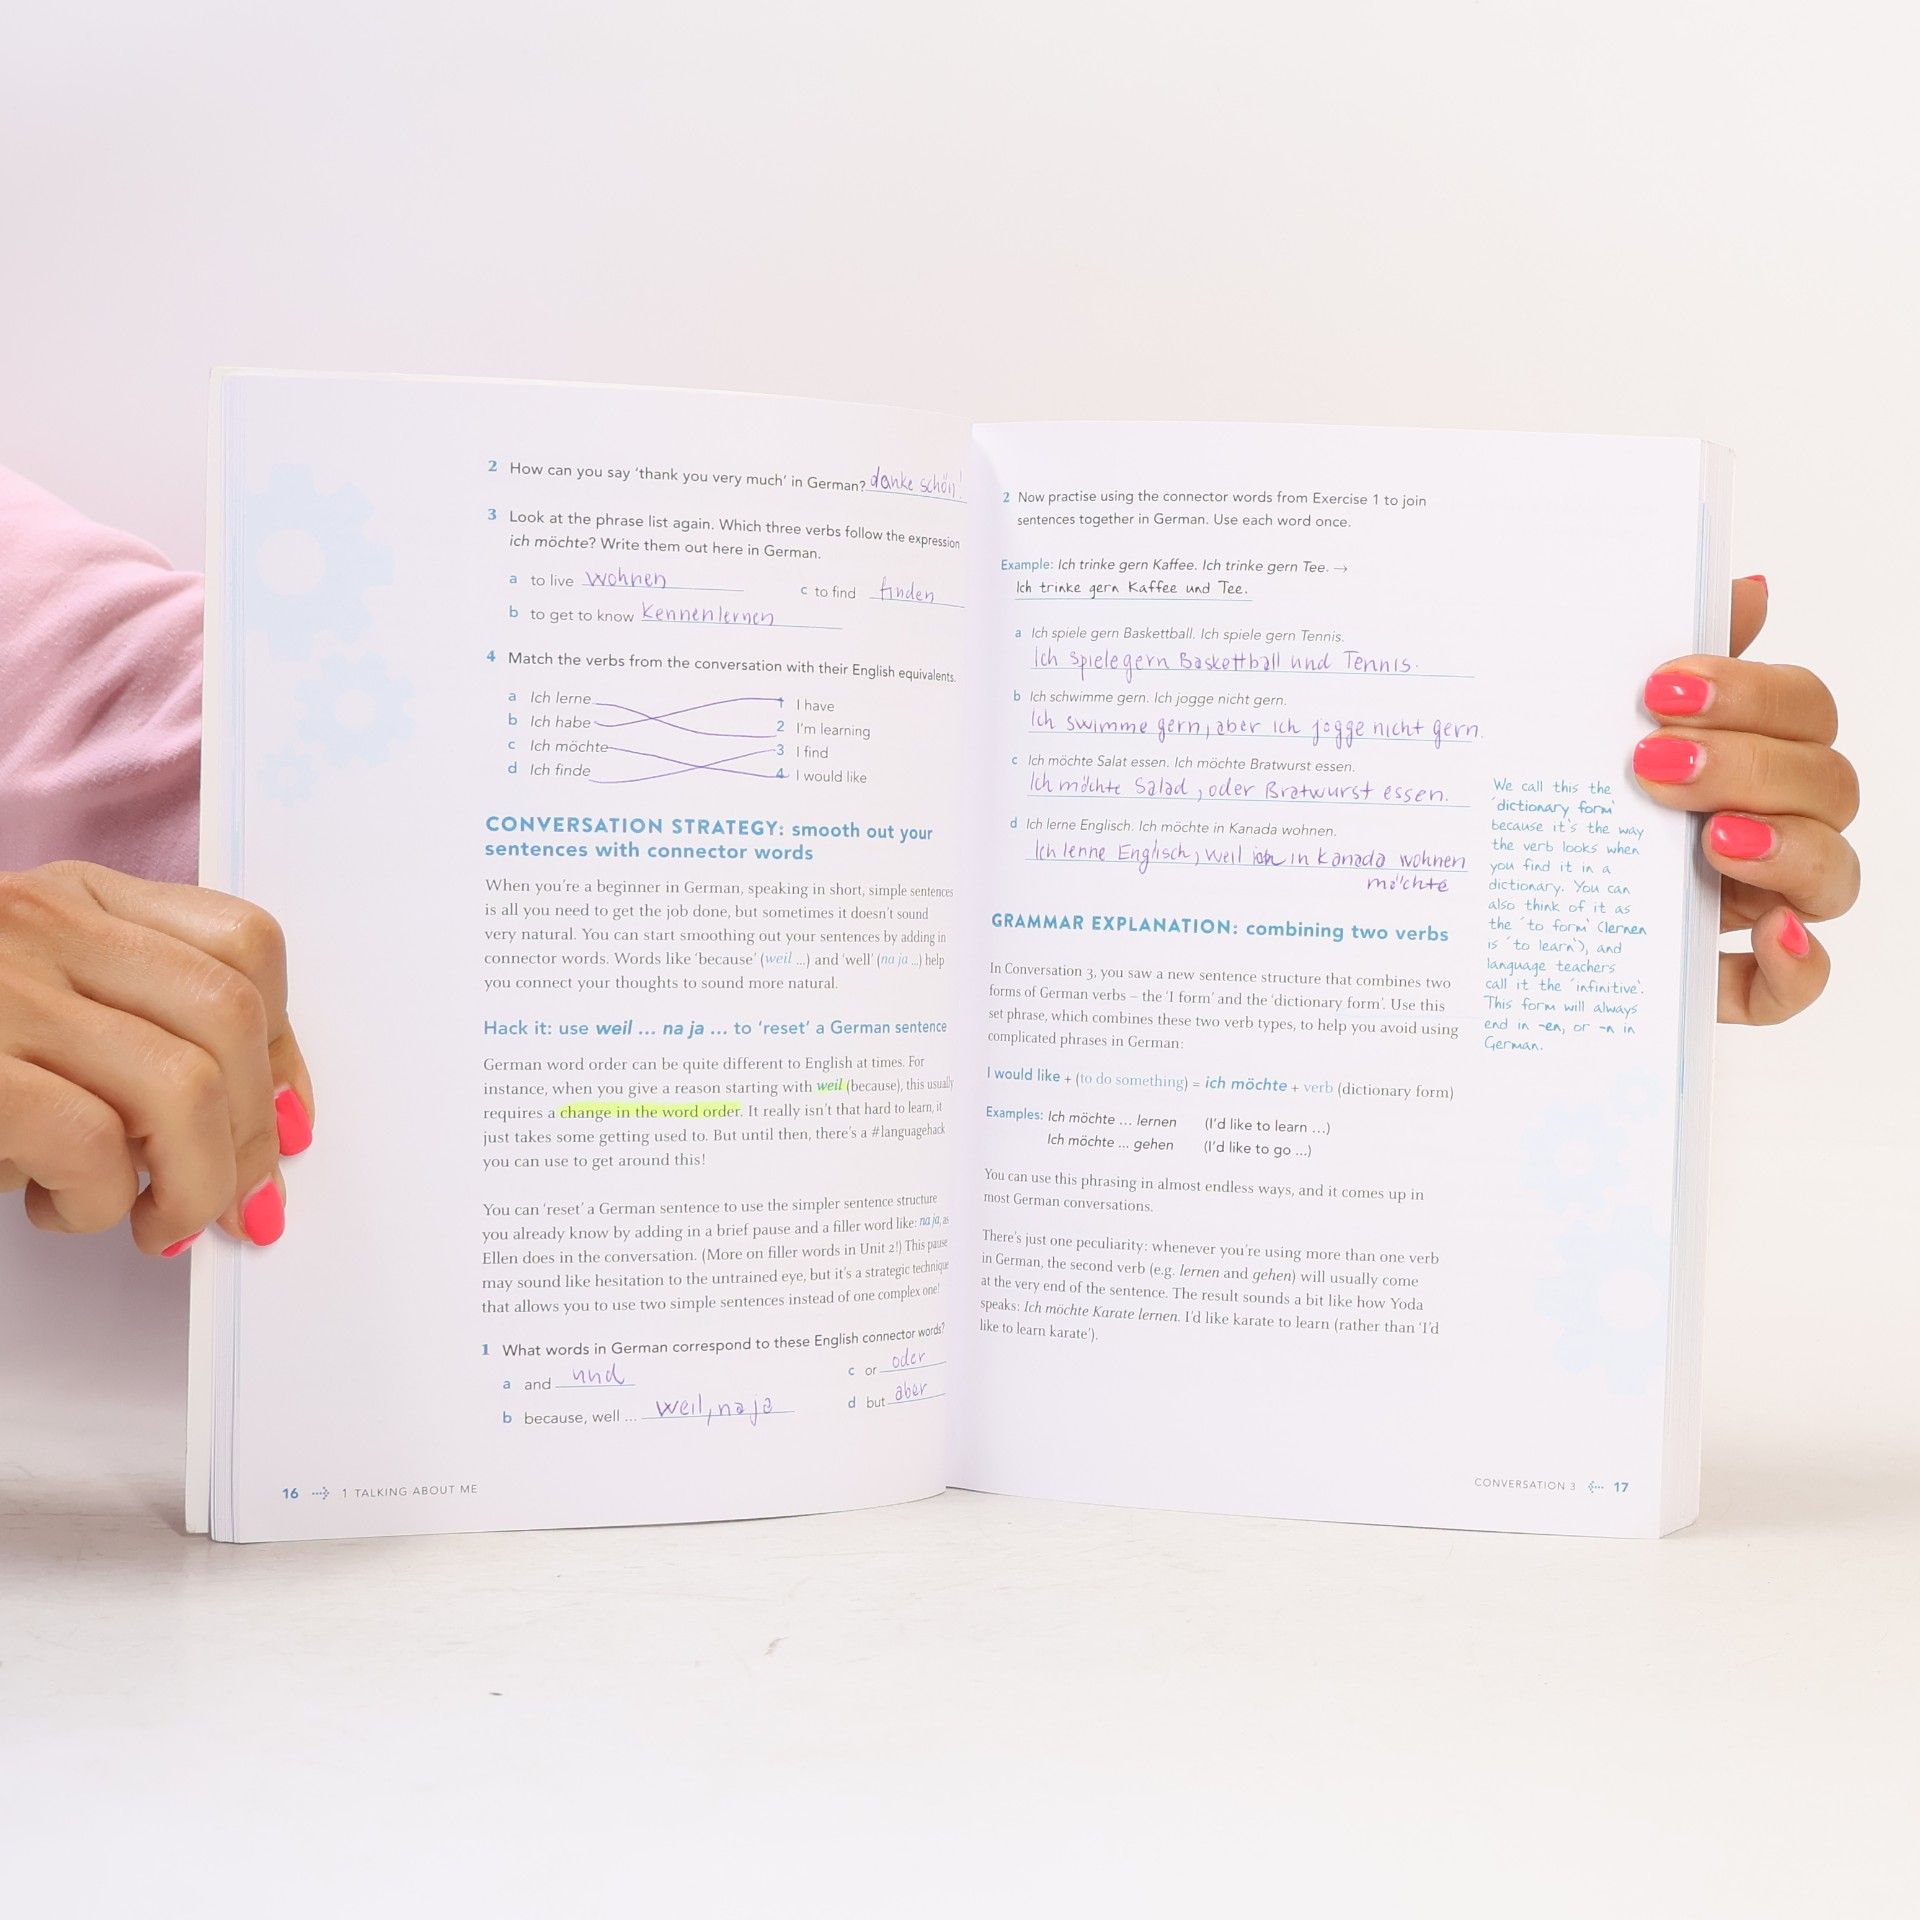 2 How can you say 'thank you very much' in German? danke schön!
3 Look at the phrase list again. Which three verbs follow the expression
ich möchte? Write them out here in German.
a to live wohnen
c to find finden
b to get to know kennenlernen
4 Match the verbs from the conversation with their English equivalents.
a Ich lerne
1 I have
b Ich habe
2 I'm learning
c Ich möchte
3 I find
d Ich finde
4 I would like
CONVERSATION STRATEGY: smooth out your
sentences with connector words
When you're a beginner in German, speaking in short, simple sentences
is all you need to get the job done, but sometimes it doesn't sound
very natural. You can start smoothing out your sentences by adding in
connector words. Words like 'because' (weil ...) and 'well' (na ja ...) help
you connect your thoughts to sound more natural.
Hack it: use weil ... na ja ... to 'reset' a German sentence
German word order can be quite different to English at times. For
instance, when you give a reason starting with weil (because), this usually
requires a change in the word order. It really isn't that hard to learn, it
just takes some getting used to. But until then, there's a #languagehack
you can use to get around this!
You can 'reset' a German sentence to use the simpler sentence structure
you already know by adding in a brief pause and a filler word like: na ja, as
Ellen does in the conversation. (More on filler words in Unit 2!) This pause
may sound like hesitation to the untrained eye, but it's a strategic technique
that allows you to use two simple sentences instead of one complex one!
1 What words in German correspond to these English connector words?
a and und
c or oder
b because, well ... weil, na ja
d but aber
16 1 TALKING ABOUT ME
2 Now practise using the connector words from Exercise 1 to join
sentences together in German. Use each word once.
Example: Ich trinke gern Kaffee. Ich trinke gern Tee. →
Ich trinke gern Kaffee und Tee.
a Ich spiele gern Baskettball. Ich spiele gern Tennis.
Ich spiele gern Baskettball und Tennis.
b Ich schwimme gern. Ich jogge nicht gern.
Ich swimme gern, aber ich jogge nicht gern.
c Ich möchte Salat essen. Ich möchte Bratwurst essen.
Ich möchte Salad, oder Bratwurst essen.
d Ich lerne Englisch. Ich möchte in Kanada wohnen.
Ich lenne Englisch, weil ich in Kanada wohnen
möchte
GRAMMAR EXPLANATION: combining two verbs
In Conversation 3, you saw a new sentence structure that combines two
forms of German verbs – the 'I form' and the 'dictionary form'. Use this
set phrase, which combines these two verb types, to help you avoid using
complicated phrases in German:
I would like + (to do something) = ich möchte + verb (dictionary form)
Examples: Ich möchte ... lernen (I'd like to learn ...)
Ich möchte ... gehen (I'd like to go ...)
You can use this phrasing in almost endless ways, and it comes up in
most German conversations.
There's just one peculiarity: whenever you're using more than one verb
in German, the second verb (e.g. lernen and gehen) will usually come
at the very end of the sentence. The result sounds a bit like how Yoda
speaks: Ich möchte Karate lernen. I'd like karate to learn (rather than 'I'd
like to learn karate').
We call this the
'dictionary form'
because it's the way
the verb looks when
you find it in a
dictionary. You can
also think of it as
the 'to form' (lernen
is 'to learn'), and
language teachers
call it the 'infinitive'.
This form will always
end in -en, or -n in
German.
CONVERSATION 3 17